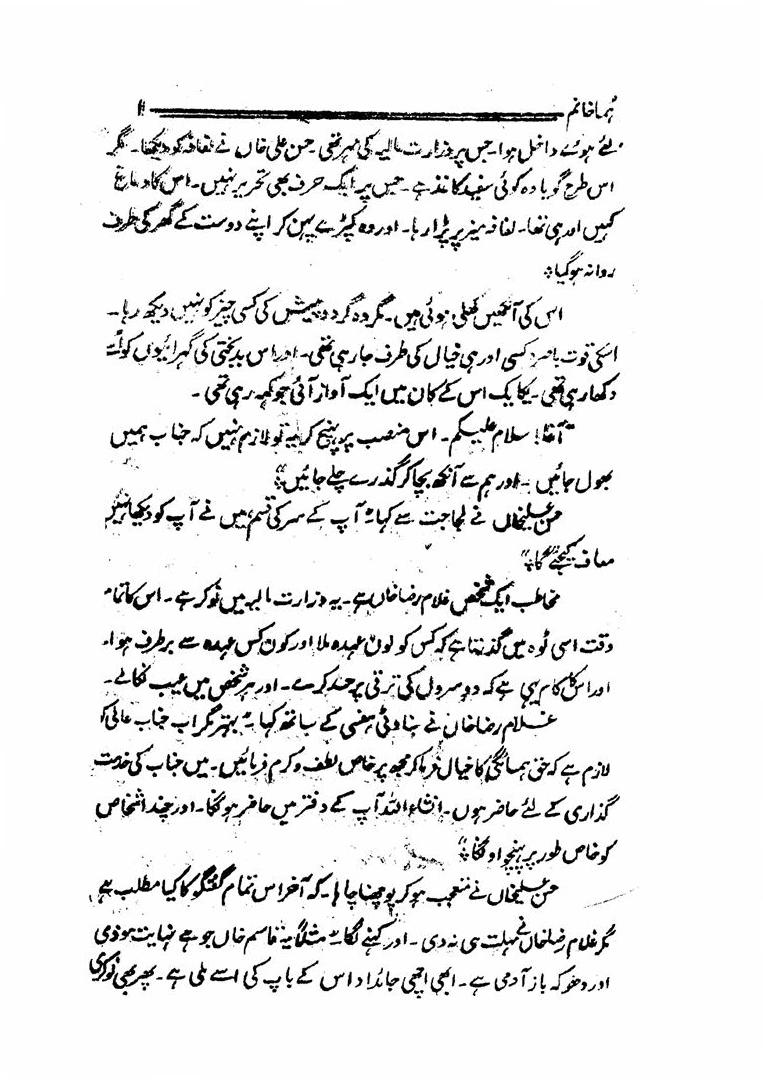 ہما خانم ۱۱
لئے ہوئے داخل ہوا۔ جس پر وزارت مالیہ کی مہر تھی۔ حسن علی خاں نے لفافہ کو دیکھا۔ مگر
اس طرح گویا وہ کوئی سفید کاغذ ہے۔ جس پر ایک حرف بھی تحریر نہیں۔ اس کا دماغ
کہیں اور ہی تھا۔ لفافہ میز پر پڑا رہا۔ اور وہ کپڑے پہن کر اپنے دوست کے گھر کی طرف
روانہ ہو گیا۔
اس کی آنکھیں کھلی ہوئی ہیں۔ مگر وہ گرد و پیش کی کسی چیز کو نہیں دیکھ رہا۔
اسکی قوت باصرہ کسی اور ہی خیال کی طرف جا رہی تھی۔ اور اس بدبختی کی گہرائیوں کو اُسے
دکھا رہی تھی۔ یکایک اس کے کان میں ایک آواز آئی جو کہہ رہی تھی۔
"آغا! سلام علیکم۔ اس منصب پر پہنچ کر یہ تو لازم نہیں کہ جناب ہمیں
بھول جائیں۔ اور ہم سے آنکھ بچا کر گذرے چلے جائیں"
حسن علیخاں نے لجاجت سے کہا "آپ کے سر کی قسم میں نے آپ کو دیکھا نہیں
معاف کیجئے گا"
مخاطب ایک شخص غلام رضا خاں ہے۔ یہ وزارت مالیہ میں نوکر ہے۔ اس کا تمام
وقت اسی ٹوہ میں گذرتا ہے کہ کس کو کون عہدہ ملا اور کون کس عہدہ سے برطرف ہوا۔
اور اسکا کام یہی ہے کہ دوسروں کی ترقی پر حسد کرے۔ اور ہر شخص میں عیب نکالے۔
غلام رضا خاں نے بناوٹی ہنسی کے ساتھ کہا "بہتر مگر اب جناب عالی کو
لازم ہے کہ حق ہمسائگی کا خیال فرما کر مجھ پر خاص لطف و کرم فرمائیں۔ میں جناب کی خدمت
گذاری کے لئے حاضر ہوں۔ انشاء اللہ آپ کے دفتر میں حاضر ہونگا۔ اور چند اشخاص
کو خاص طور پر پہنچواؤنگا"
حسن علیخاں نے متعجب ہو کر پوچھنا چاہا۔ کہ آخر اس تمام گفتگو کا کیا مطلب ہے
مگر غلام رضا خاں نے مہلت ہی نہ دی۔ اور کہنے لگا "مثلاً یہ قاسم خاں جو ہے نہایت موذی
اور دھوکہ باز آدمی ہے۔ ابھی اچھی جائداد اس کے باپ کی اسے ملی ہے۔ پھر بھی نوکری